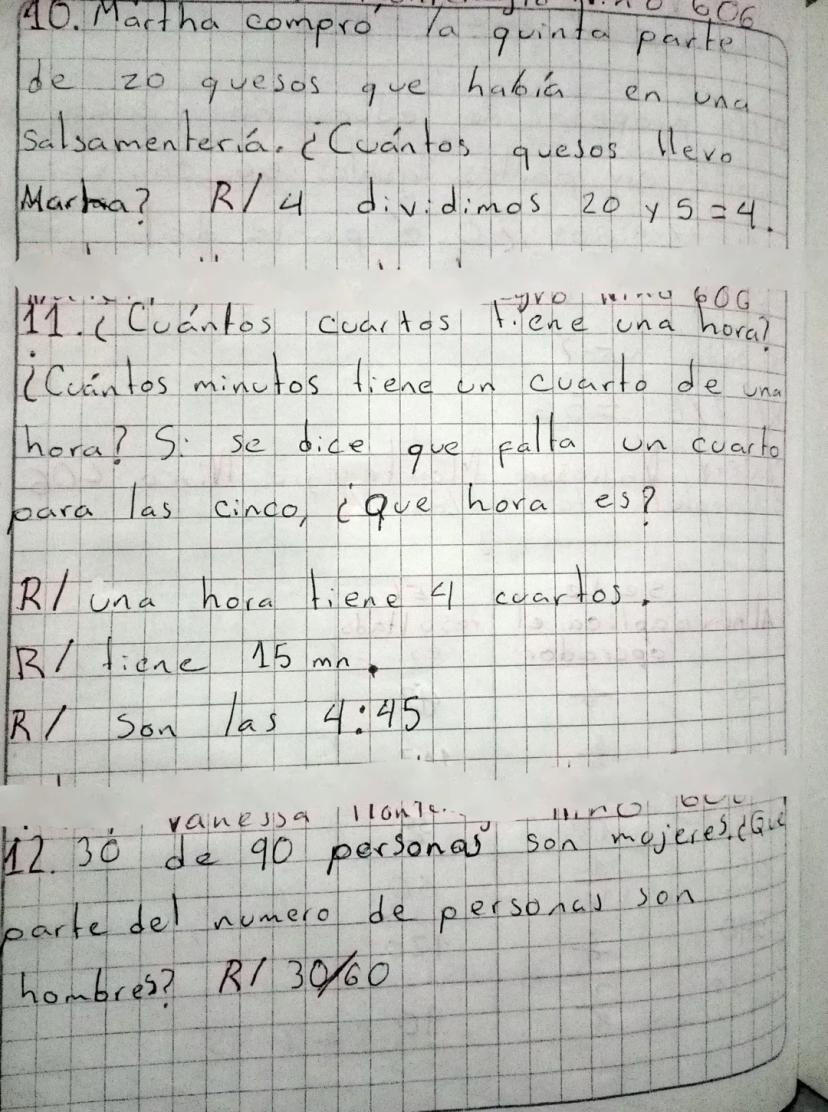 606
10. Martha compró la quinta parte
de 20 quesos que había en una
salsamentería. ¿Cuántos quesos llevo
Martha? R/ 4 dividimos 20 y 5 = 4.
606
11. ¿Cuántos cuartos tiene una hora?
¿Cuántos minutos tiene un cuarto de una
hora? Si se dice que falta un cuarto
para las cinco, ¿que hora es?
R/ una hora tiene 4 cuartos.
R/ tiene 15 mn.
R/ Son las 4:45
vanessa
12. 30 de 90 personas son mujeres. ¿Qué
parte del numero de personas son
hombres? R/ 30/60